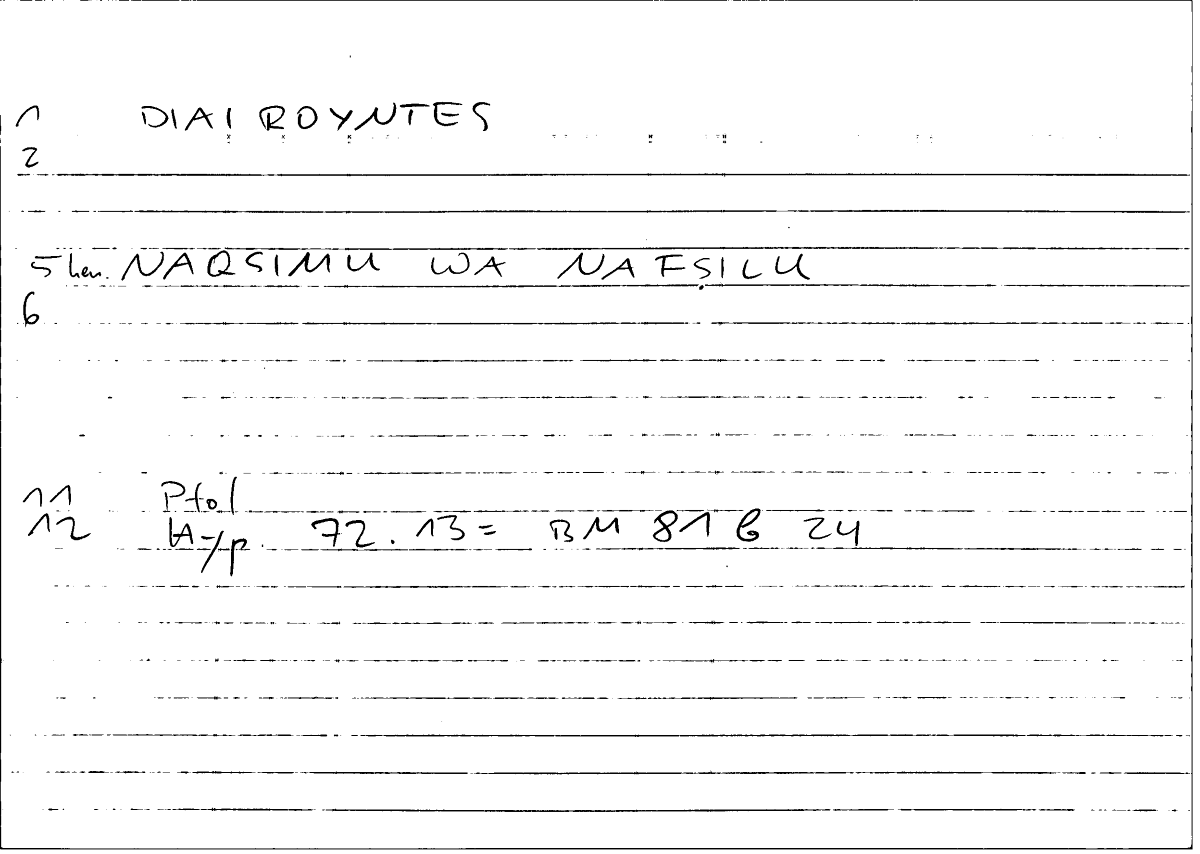 1 DIAIROYNTES
2
5 hen. NAQSIMU WA NAFṢILU
6
11 Ptol
12 Hyp. 72.13 = BM 81 b 24